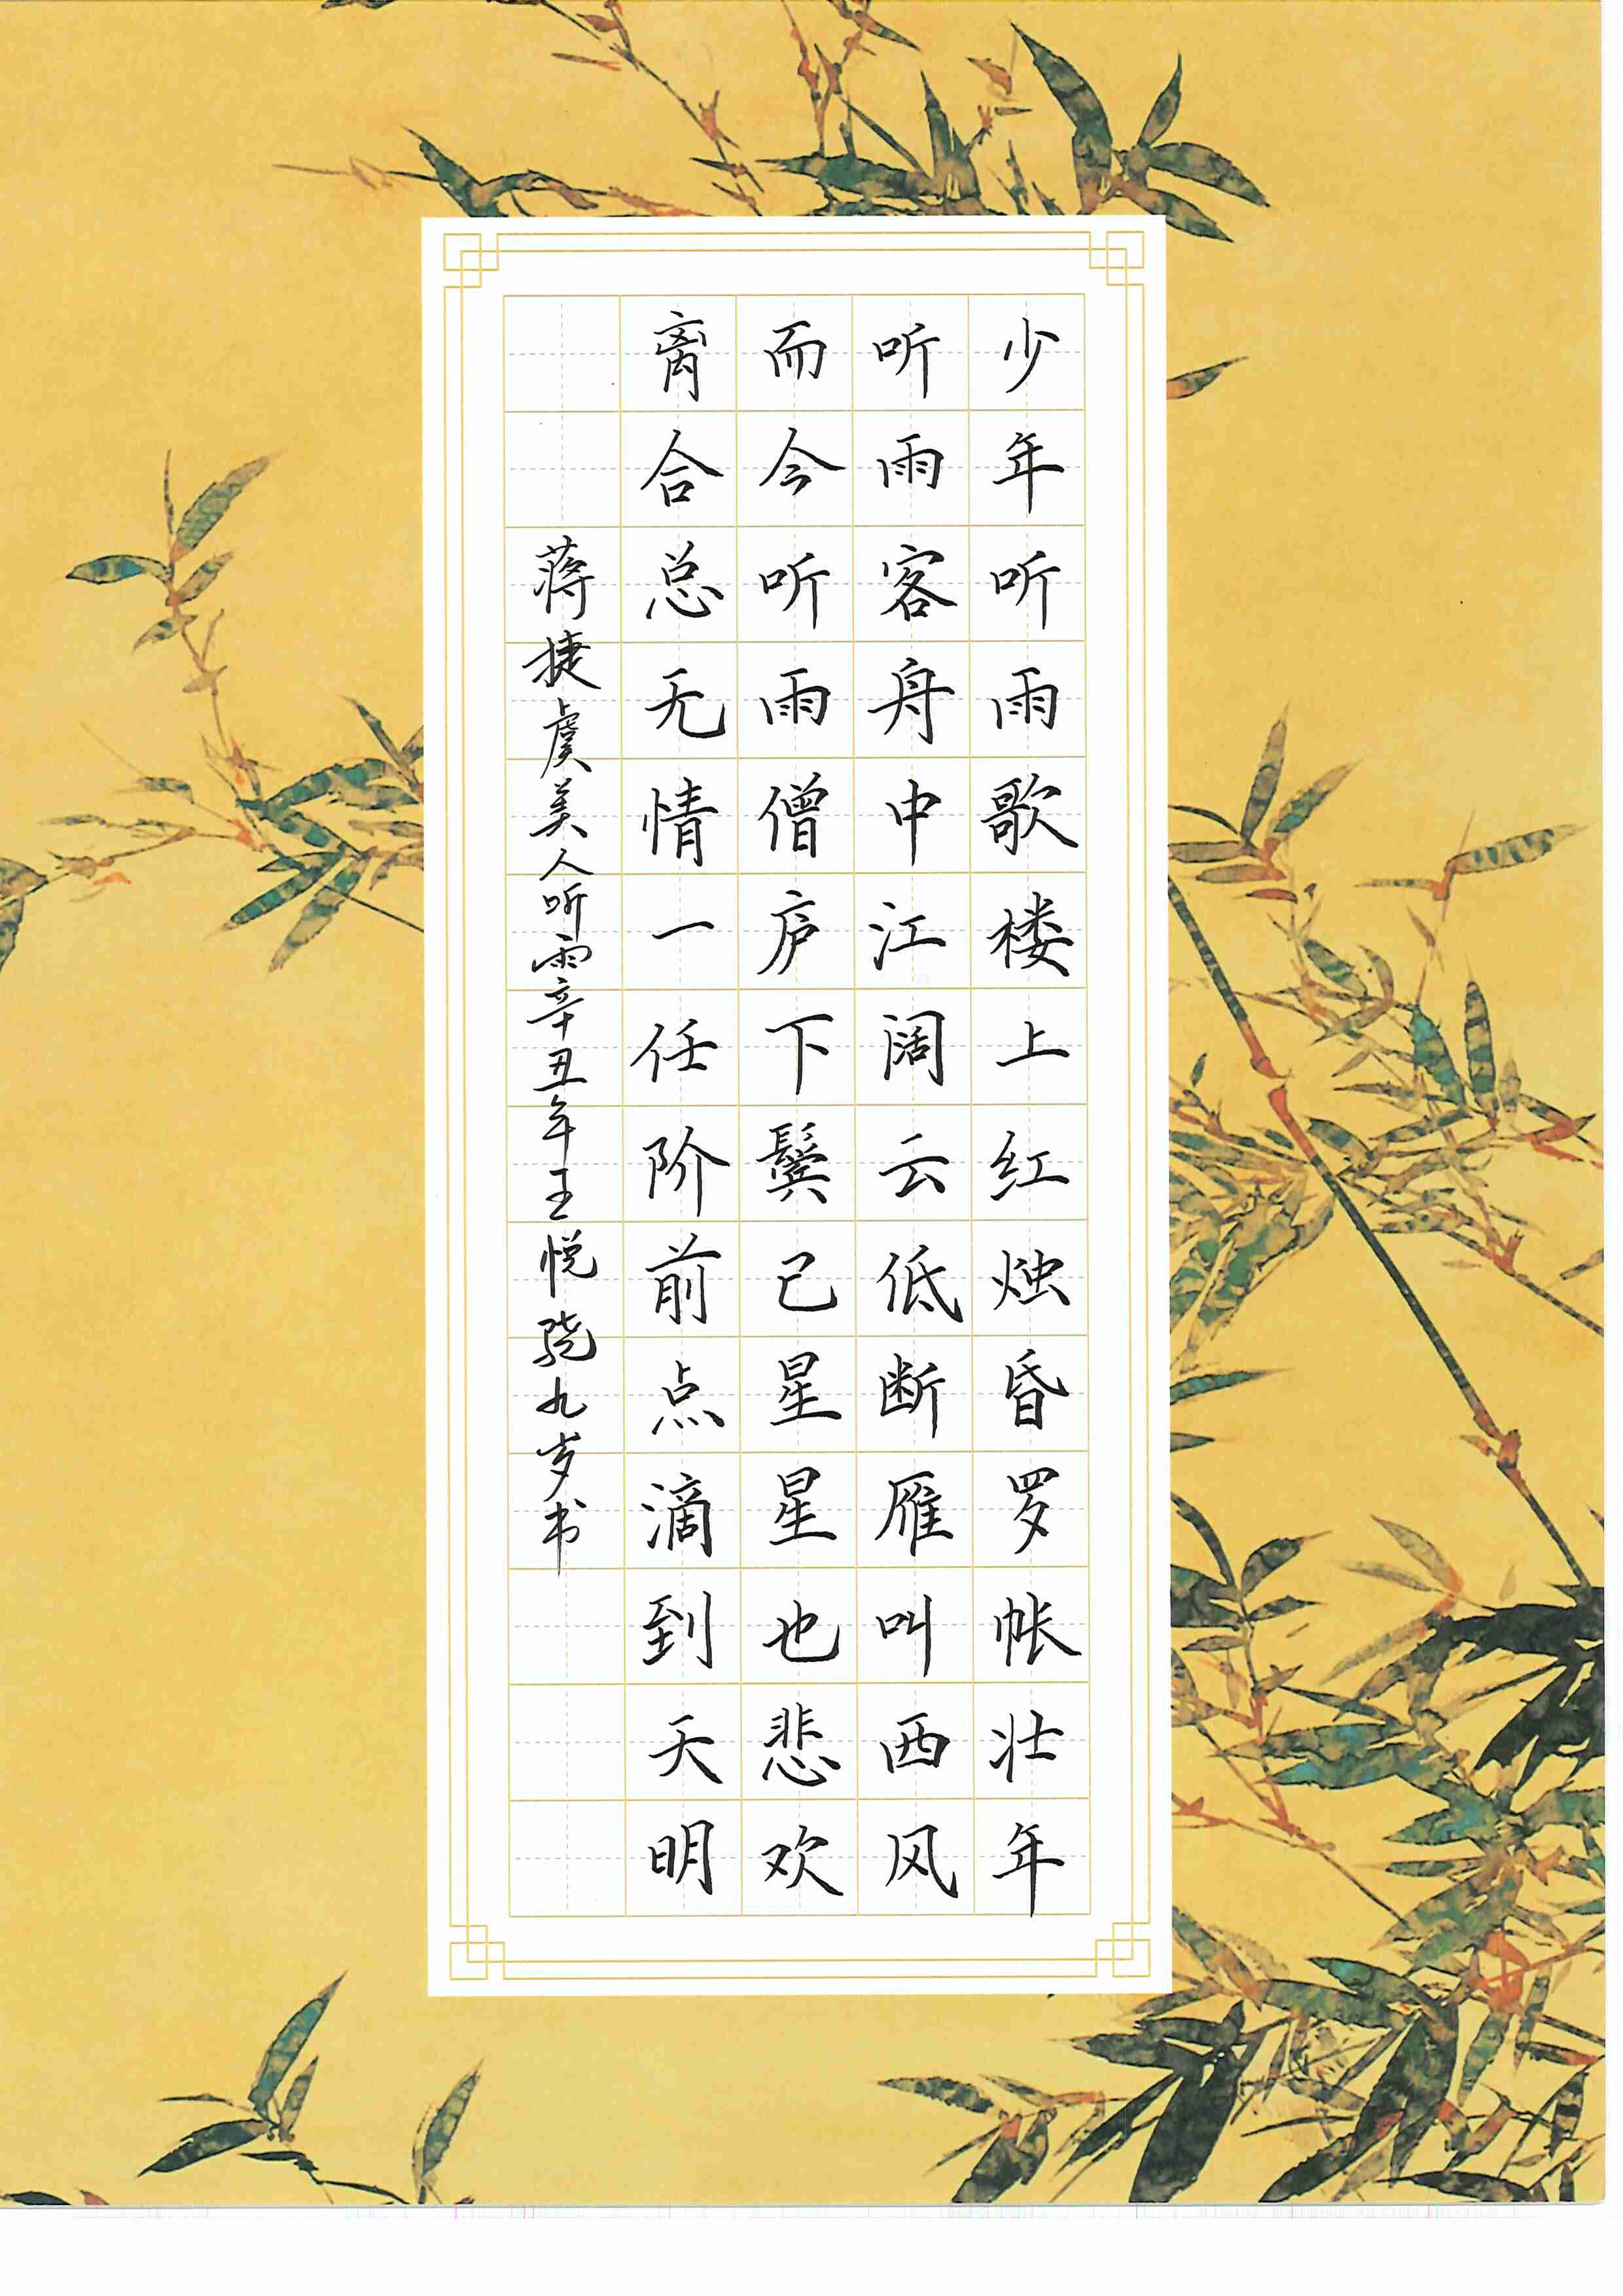 少年听雨歌楼上红烛昏罗帐壮年
听雨客舟中江阔云低断雁叫西风
而今听雨僧庐下鬓已星星也悲欢
离合总无情一任阶前点滴到天明
蒋捷虞美人听雨辛丑年王悦骁九岁书